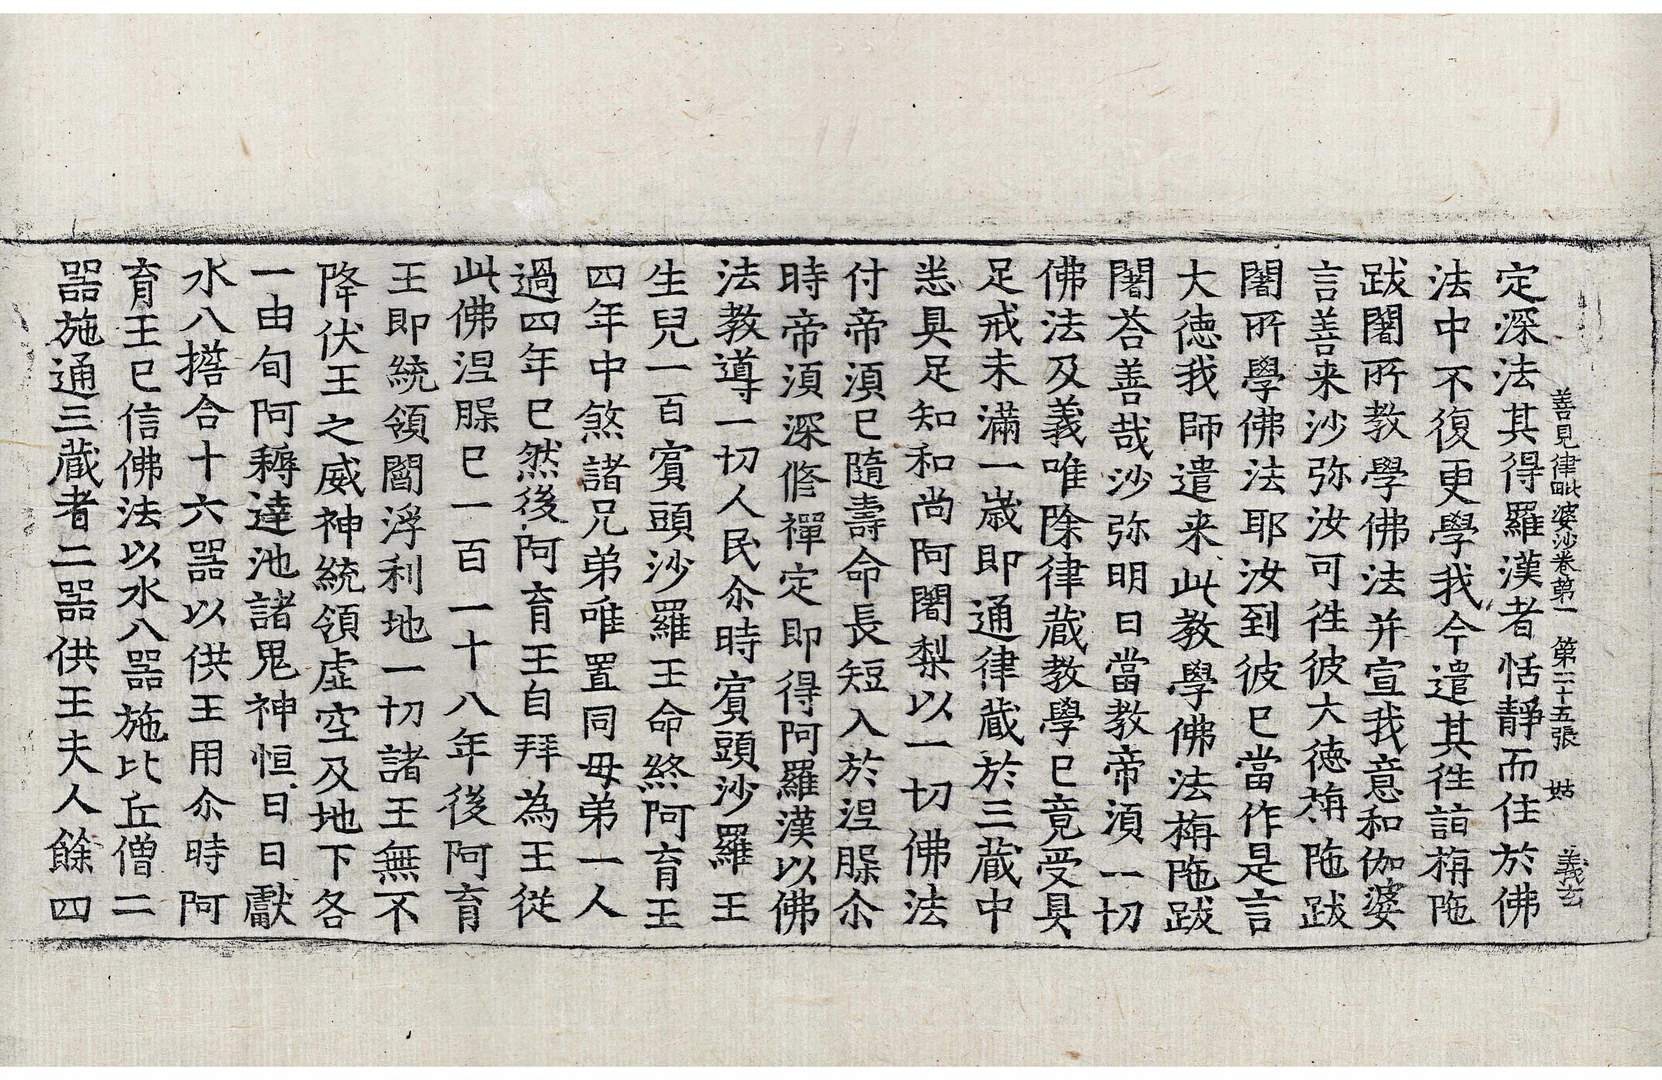 善見律毗婆沙卷第一　第二十五張　姑　義玄
定深法其得羅漢者恬靜而住於佛
法中不復更學我今遣其徃詣栴陁
跋闍所教學佛法并宣我意和伽婆
言善来沙弥汝可徃彼大德栴陁跋
闍所學佛法耶汝到彼已當作是言
大德我師遣来此教學佛法栴陁跋
闍荅善哉沙弥明日當教帝湏一切
佛法及義唯除律蔵教學已竟受具
足戒未滿一歳即通律蔵於三蔵中
悉具足知和尚阿闍梨以一切佛法
付帝湏已隨壽命長短入於涅䐺尒
時帝湏深修禪定即得阿羅漢以佛
法教導一切人民尒時賔頭沙羅王
生兒一百賔頭沙羅王命終阿育王
四年中煞諸兄弟唯置同毋弟一人
過四年已然後阿育王自拜為王従
此佛涅䐺已一百一十八年後阿育
王即統領閻浮利地一切諸王無不
降伏王之威神統領虛空及地下各
一由旬阿耨達池諸鬼神恒日日獻
水八擔合十六器以供王用尒時阿
育王已信佛法以水八器施比丘僧二
器施通三蔵者二器供王夫人餘四